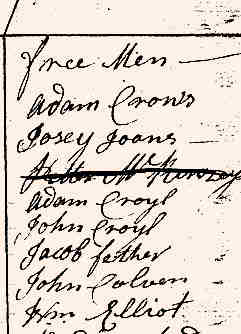 Free Men —
Adam Crows
Josey Joans
Peter McKinzey
Adam Croyl
John Croyl
Jacob fether
John Colven
Wm Elliot